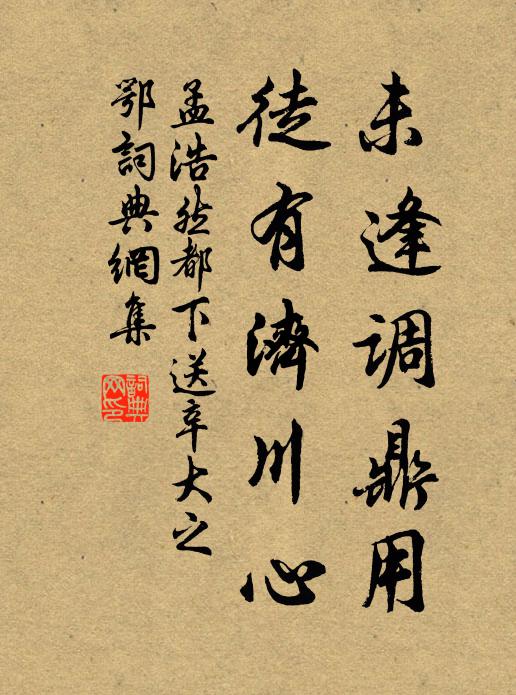 未逢調鼎用
徒有濟川心
孟浩然都下送辛大之
鄂詞典網集
詞典網印